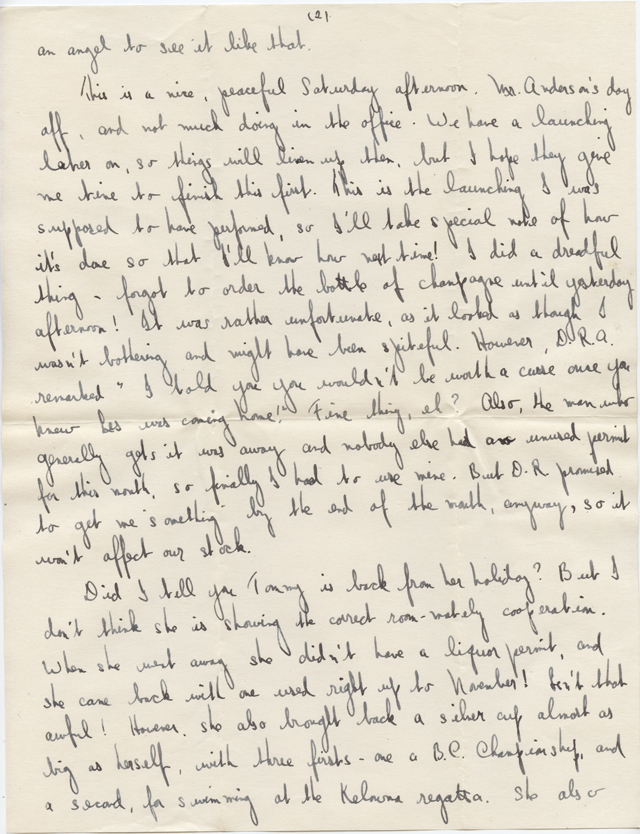 (2)
an angel to see it like that.
This is a nice, peaceful Saturday afternoon. Mr. Anderson's day
off, and not much doing in the office. We have a launching
later on, so things will liven up then, but I hope they give
me time to finish this first. This is the launching I was
supposed to have performed, so I'll take special note of how
it's done so that I'll know how next time! I did a dreadful
thing - forgot to order the bottle of champagne until yesterday
afternoon! It was rather unfortunate, as it looked as though I
wasn't bothering and might have been spiteful. However, D.R.A.
remarked "I told you you wouldn't be worth a curse once you
knew Les was coming home!" Fine thing, eh? Also, the man who
generally gets it was away and nobody else had an unused permit
for this month, so finally I had to use mine. But D.R. promised
to get me "something" by the end of the month, anyway, so it
won't affect our stock.
Did I tell you Tommy is back from her holiday? But I
don't think she is showing the correct room-mately cooperation.
When she went away she didn't have a liquor permit, and
she came back with one used right up to November! Isn't that
awful! However, she also brought back a silver cup almost as
big as herself, with three firsts - one a B.C. Championship, and
a second, for swimming at the Kelowna regatta. She also